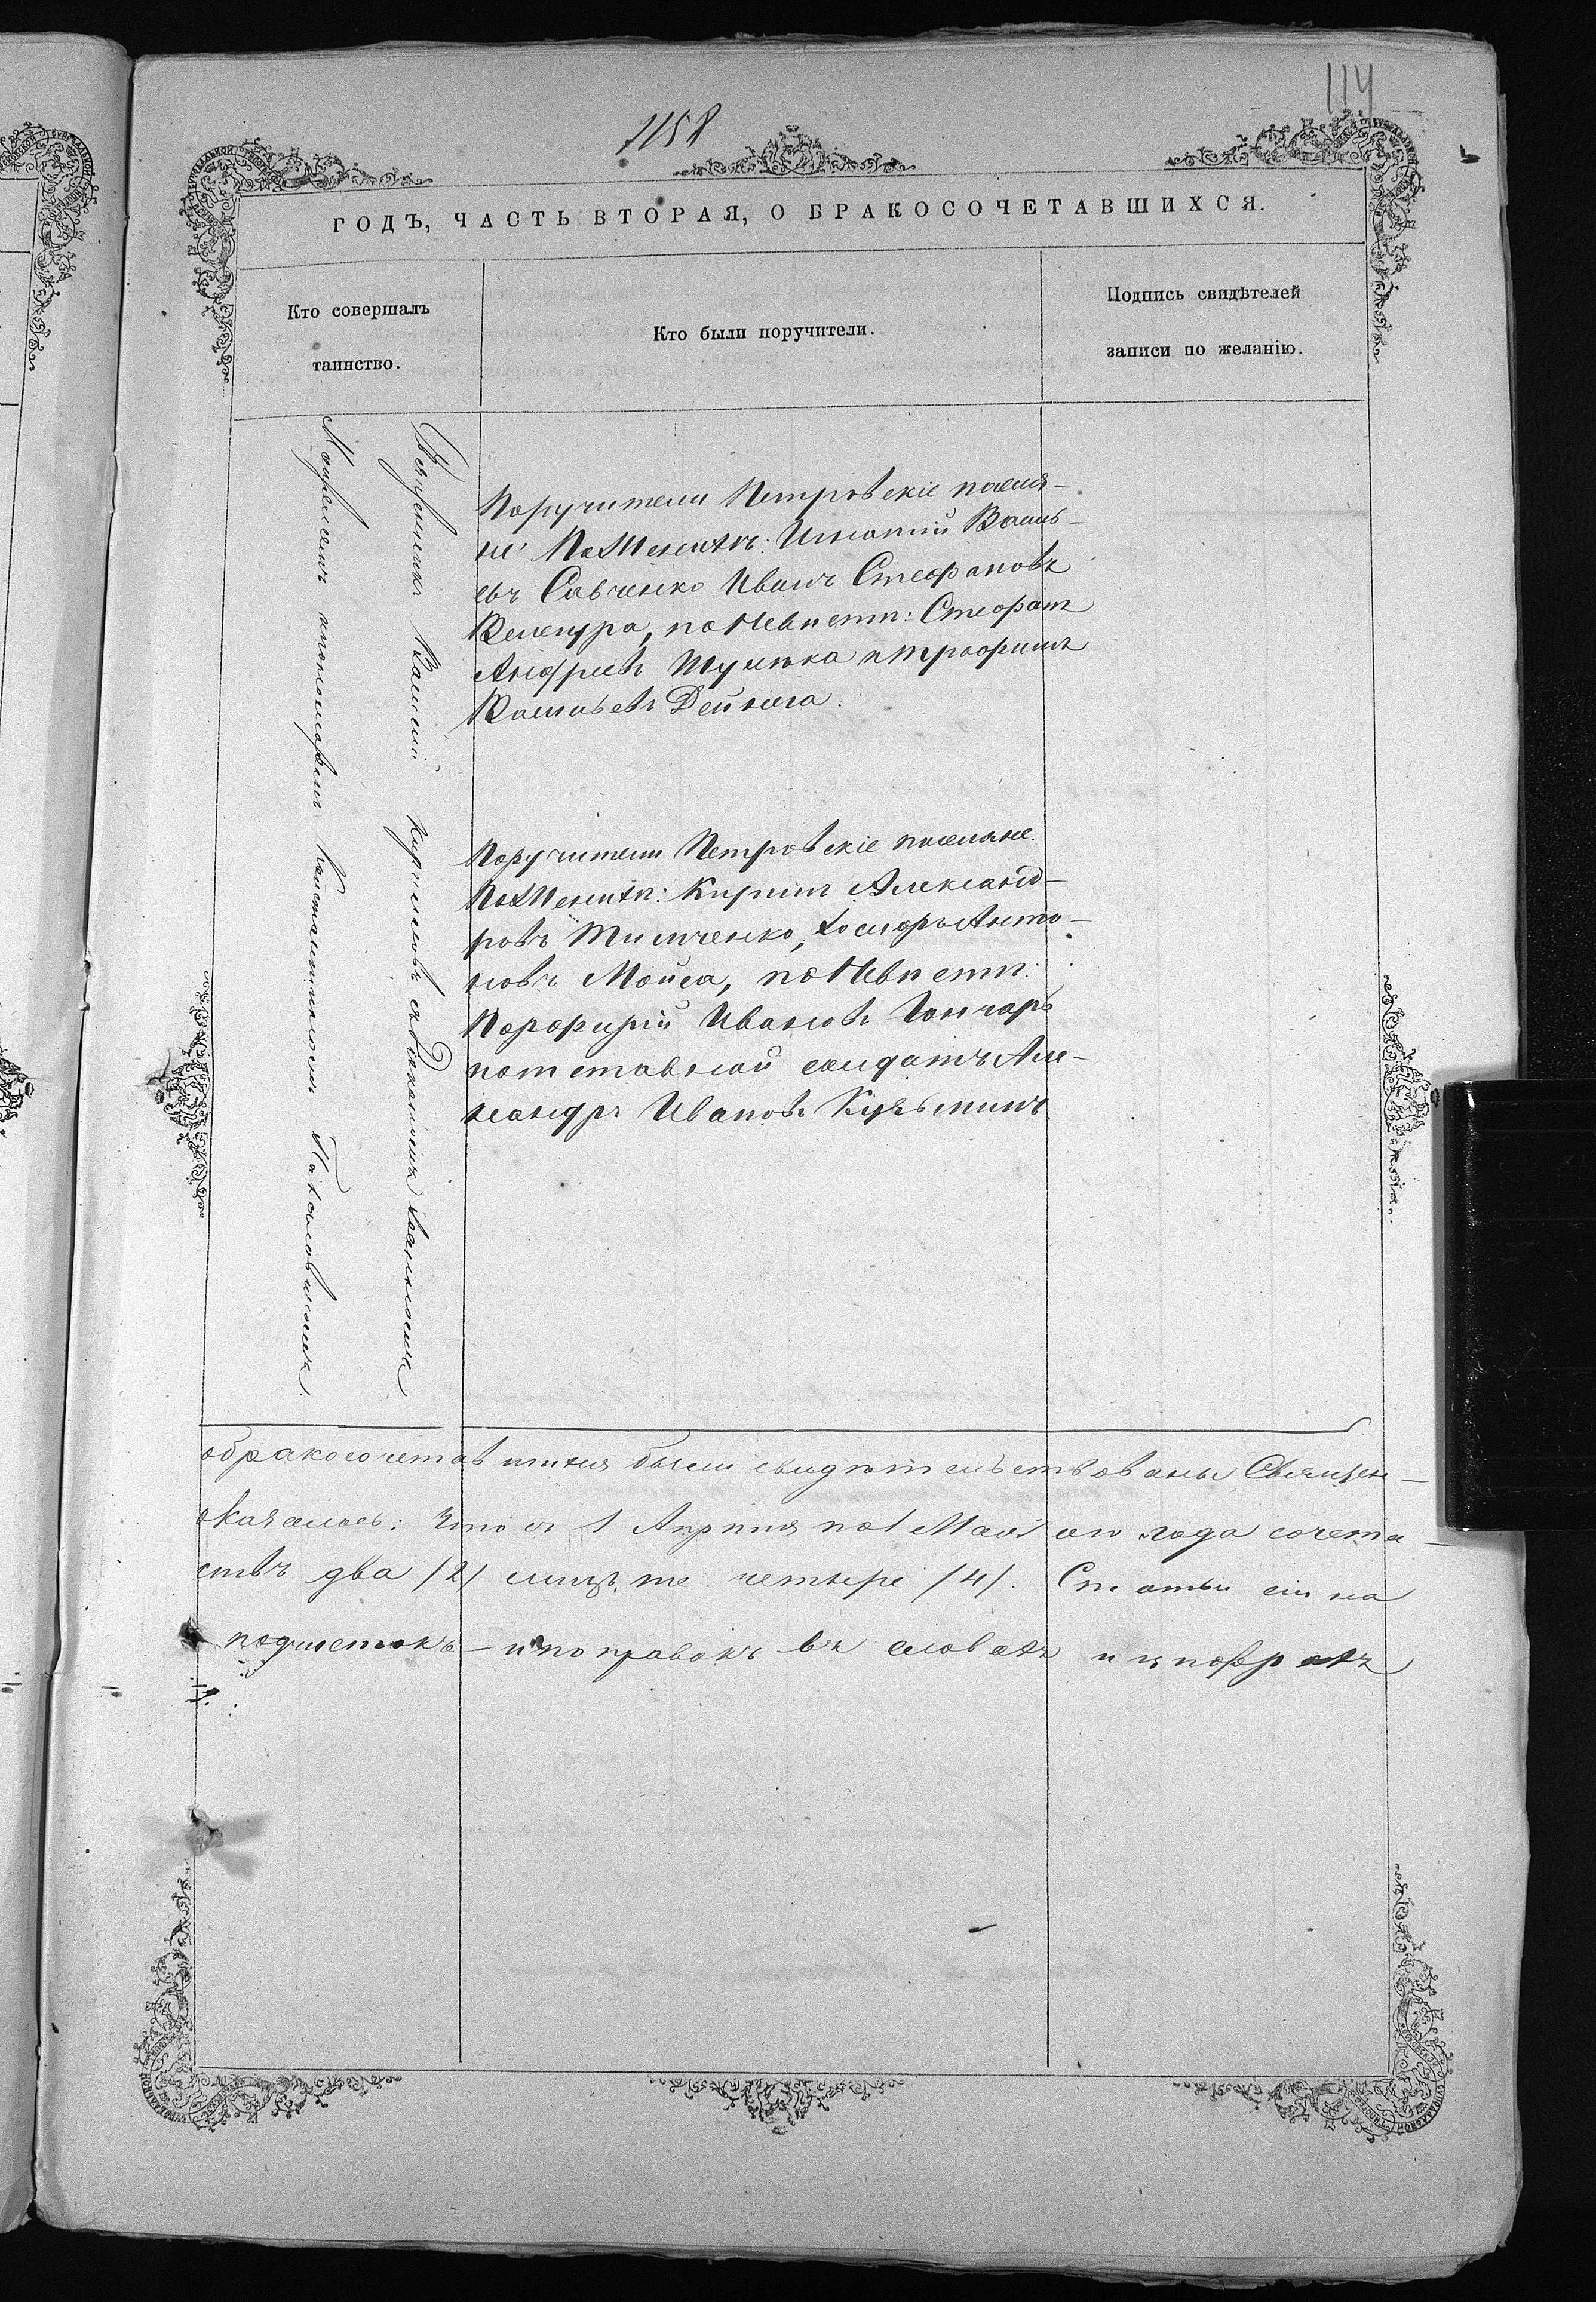 114
1158
ГОДЪ, ЧАСТЬ ВТОРАЯ, О БРАКОСОЧЕТАВШИХСЯ.
Кто совершалъ
таинство.
Кто были поручители.
Подпись свидѣтелей
записи по желанію.
Священникъ Василій Кирилловъ съ
Поручители Петровскіе поселя-
не По Женихѣ: Игнатій Василь-
евъ Савченко Иванъ Стефановъ
по Невѣстѣ: Стефанъ
Андреевъ и Трофимъ
Васильевъ Дейнега.
Поручители Петровскіе поселяне.
По Женихѣ: Кирилъ Александ-
ровъ Тимченко, Анто-
новъ Мойса, по Невѣстѣ:
Порфирій Ивановъ Гончаръ
и отставной солдатъ Але-
ксандръ Ивановъ Кузьминъ
о бракосочетавшихся были свидѣтельствованы Священ-
оказалось: Что съ 1 Апрѣля по 1 Мая сего года сочета-
ствъ два /2/ лицъ же четыре /4/. Статьи сіи на
подчистокъ и поправокъ въ словахъ и цыфрахъ